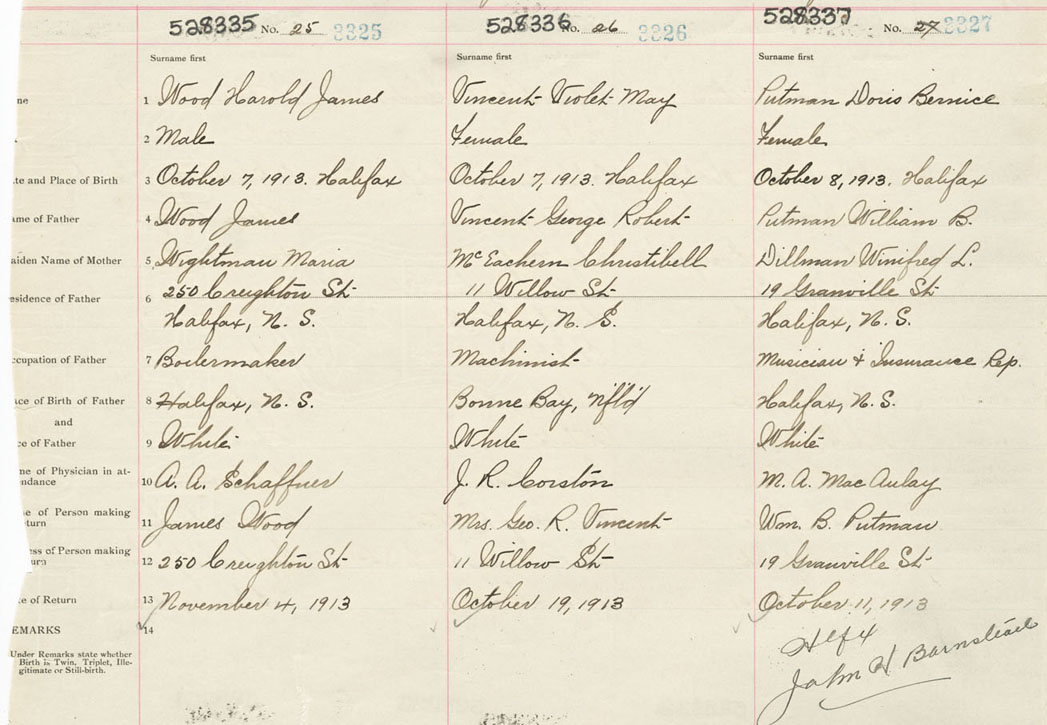 528335 No. 25 3325
Surname first
1 Wood Harold James
2 Male
3 October 7, 1913. Halifax
4 Wood James
5 Wightman Maria
6 250 Creighton St
Halifax, N. S.
7 Boilermaker
8 Halifax, N. S.
9 White
10 A. A. Schaffner
11 James Wood
12 250 Creighton St
13 November 4, 1913
14
528336 No. 26 3326
Surname first
Vincent Violet May
Female
October 7, 1913. Halifax
Vincent George Robert
McEachern Christibell
11 Willow St
Halifax, N. S.
Machinist
Bonne Bay, Nfl'd
White
J. R. Corston
Mrs. Geo. R. Vincent
11 Willow St
October 19, 1913
528337 No. 27 3327
Surname first
Putman Doris Bernice
Female
October 8, 1913. Halifax
Putman William B.
Dillman Winifred L.
19 Granville St
Halifax, N. S.
Musician & Insurance Rep.
Halifax, N. S.
White
M. A. MacAulay
Wm. B. Putman
19 Granville St
October 11, 1913
Hlfx
John H Barnstead
me
te and Place of Birth
ame of Father
aiden Name of Mother
esidence of Father
ccupation of Father
ace of Birth of Father
and
ce of Father
ne of Physician in at-
ndance
e of Person making
turn
ess of Person making
urn
te of Return
EMARKS
Under Remarks state whether
Birth is Twin, Triplet, Ille-
gitimate or Still-birth.